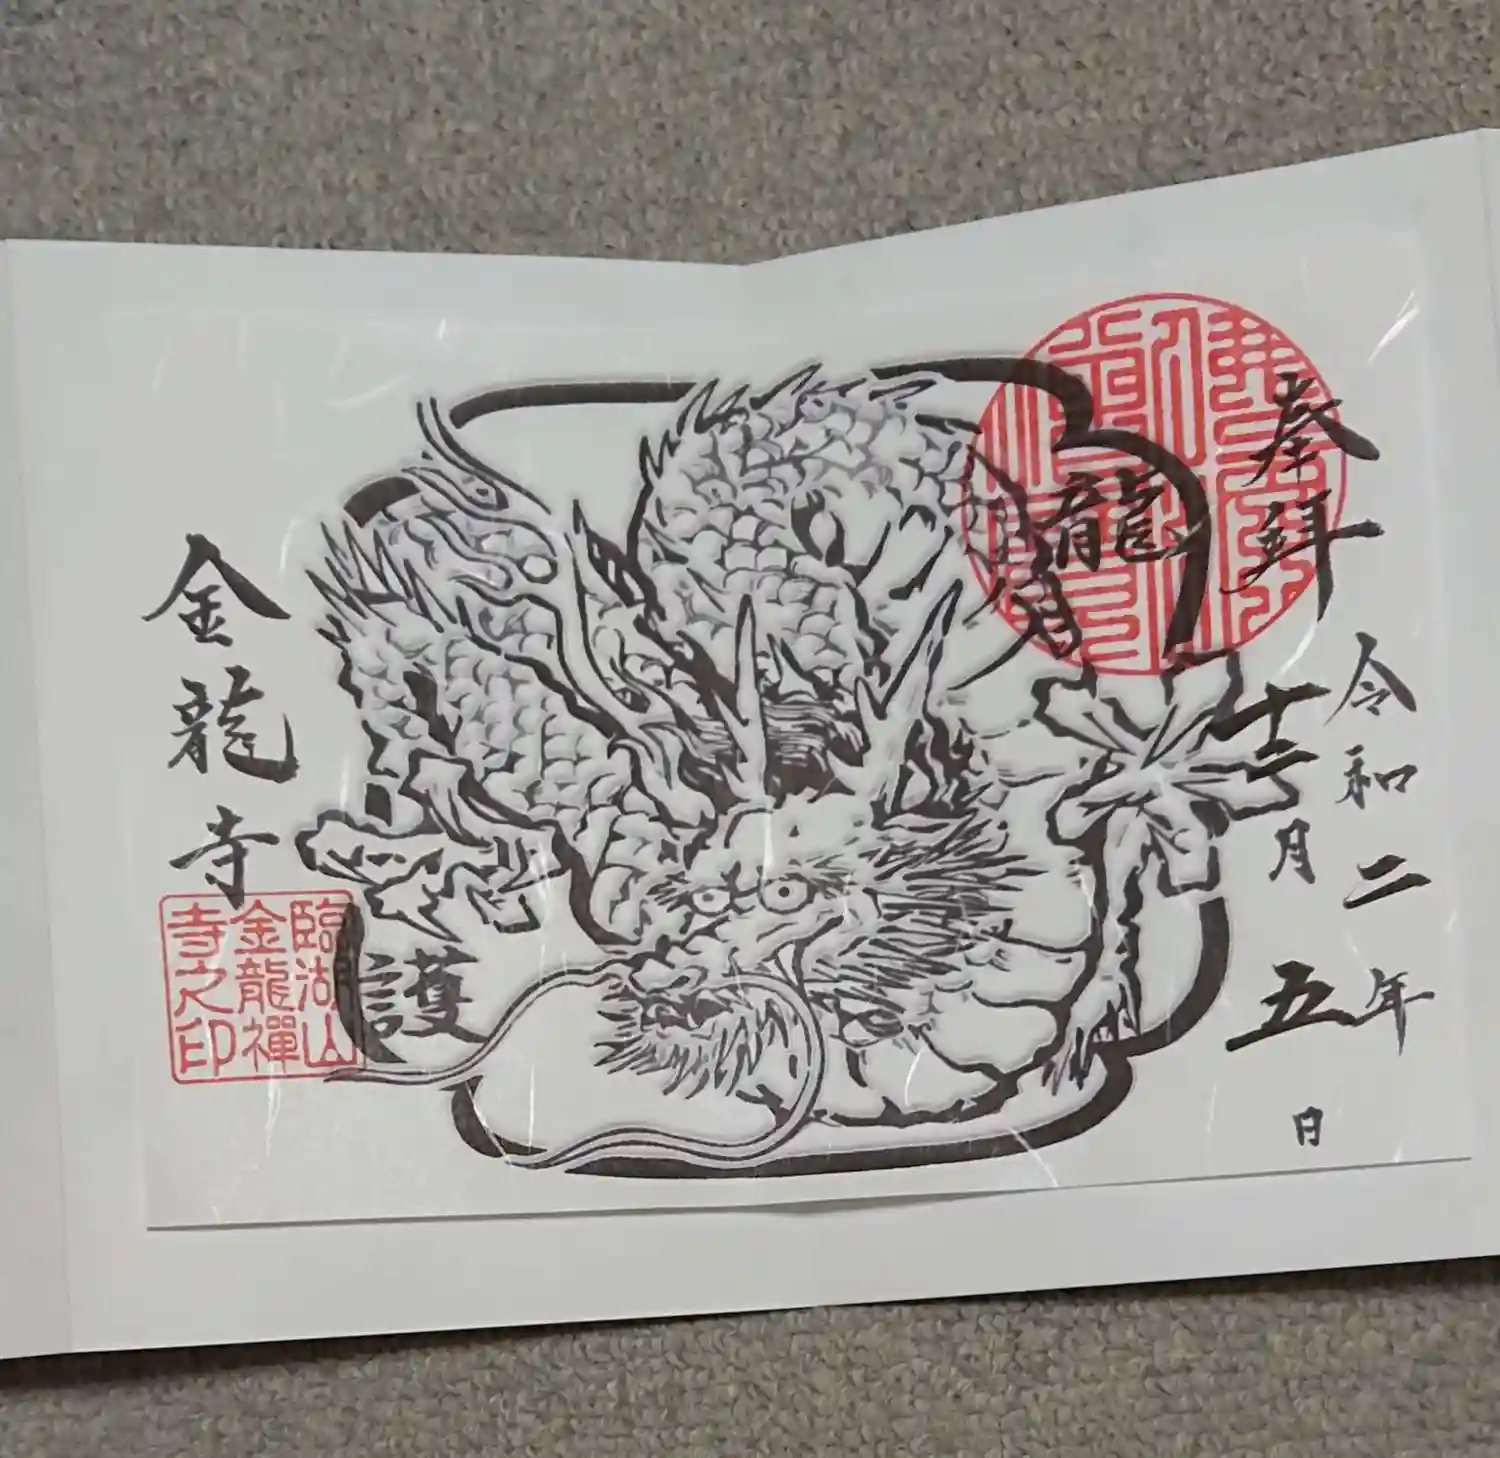 奉拜
令和二年
十二月五日
龍
護
金龍寺
臨湖山
金龍禪
寺之印